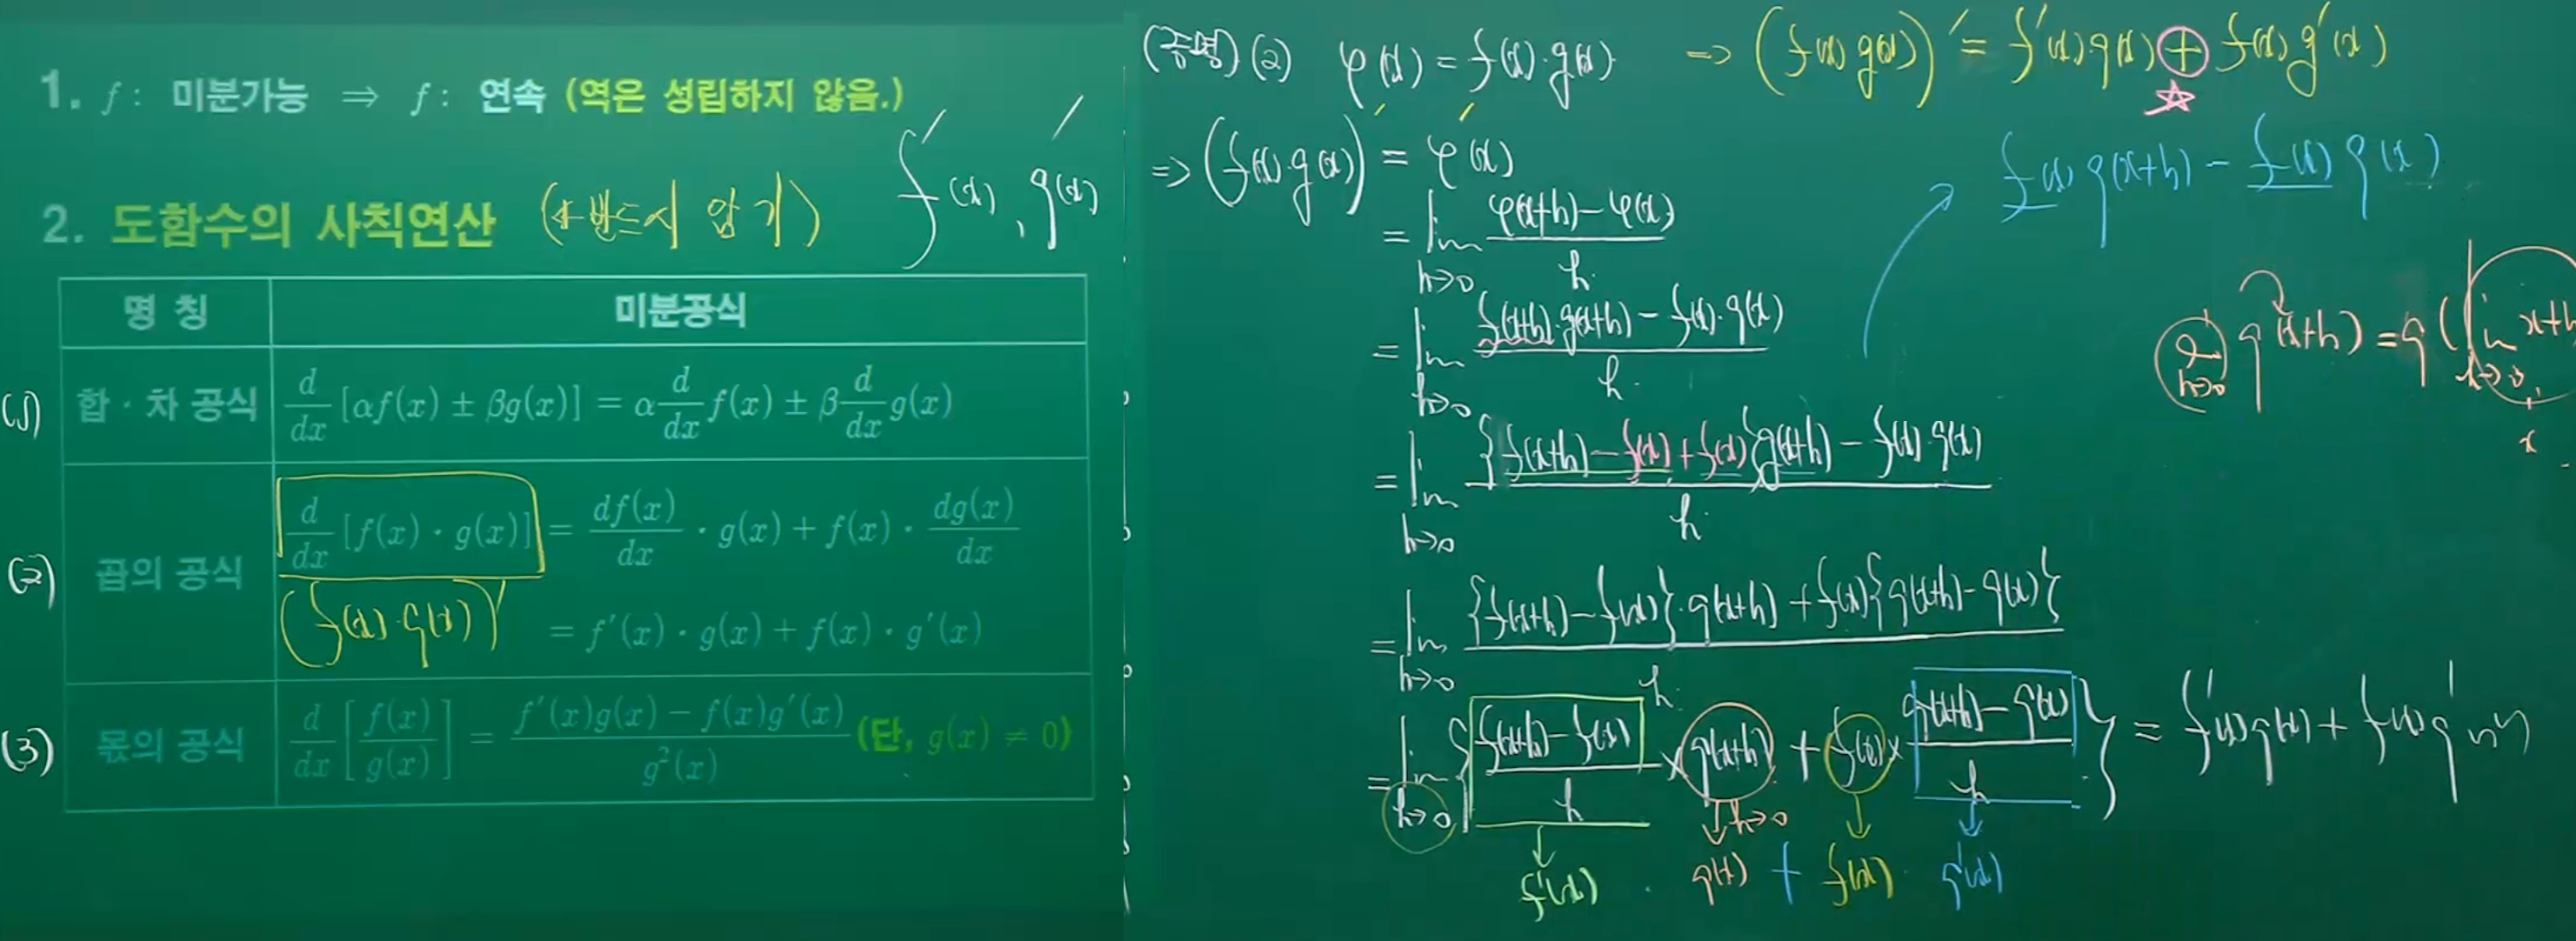 1. f : 미분가능 ⇒ f : 연속 (역은 성립하지 않음.)
2. 도함수의 사칙연산 (반드시 암기) f'(x), g'(x)
명 칭 미분공식
(1) 합 · 차 공식 d/dx [αf(x) ± βg(x)] = α d/dx f(x) ± β d/dx g(x)
(2) 곱의 공식 d/dx [f(x) · g(x)] = df(x)/dx · g(x) + f(x) · dg(x)/dx
(f(x)·g(x))' = f'(x) · g(x) + f(x) · g'(x)
(3) 몫의 공식 d/dx [f(x)/g(x)] = (f'(x)g(x) − f(x)g'(x))/g²(x) (단, g(x) ≠ 0)
(증명) (2) φ(x) = f(x)·g(x) ⇒ (f(x)g(x))' = f'(x)g(x) ⊕ f(x)g'(x)
☆
⇒ (f(x)·g(x))' = φ'(x)
f(x)g(x+h) − f(x)g(x)
= lim h→0 (φ(x+h) − φ(x))/h
= lim h→0 (f(x+h)·g(x+h) − f(x)·g(x))/h
lim h→0 g(x+h) = g(lim h→0 x+h
x
= lim h→0 ({f(x+h) − f(x) + f(x)}g(x+h) − f(x)·g(x))/h
= lim h→0 ({f(x+h) − f(x)}·g(x+h) + f(x){g(x+h) − g(x)})/h
= lim h→0 { (f(x+h) − f(x))/h × g(x+h) + f(x) × (g(x+h) − g(x))/h } = f'(x)g(x) + f(x)g'(x)
h→0
f'(x) · g(x) + f(x) · g'(x)